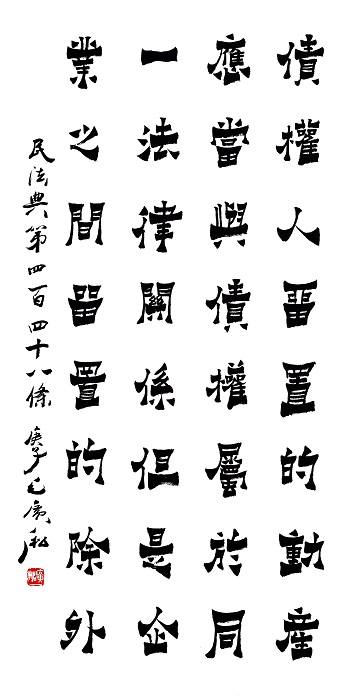 債權人畱置的動産
應當與債權屬於同
一法律關係但是企
業之間畱置的除外
民法典第四百四十八條 庚子毛廣淞